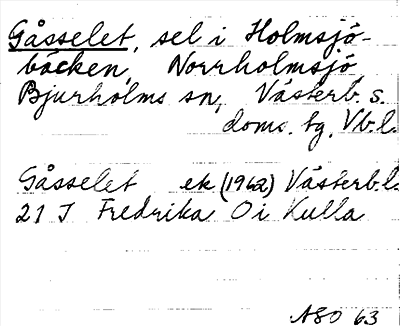 Gåsselet, sel i Holmsjö-
bäcken, Norrholmsjö,
Bjurholms sn, Västerb. s.
doms. tg, Vb.l.
Gåsselet ek (1962) Västerb.l.
21 J Fredrika O i Kulla
ASO 63